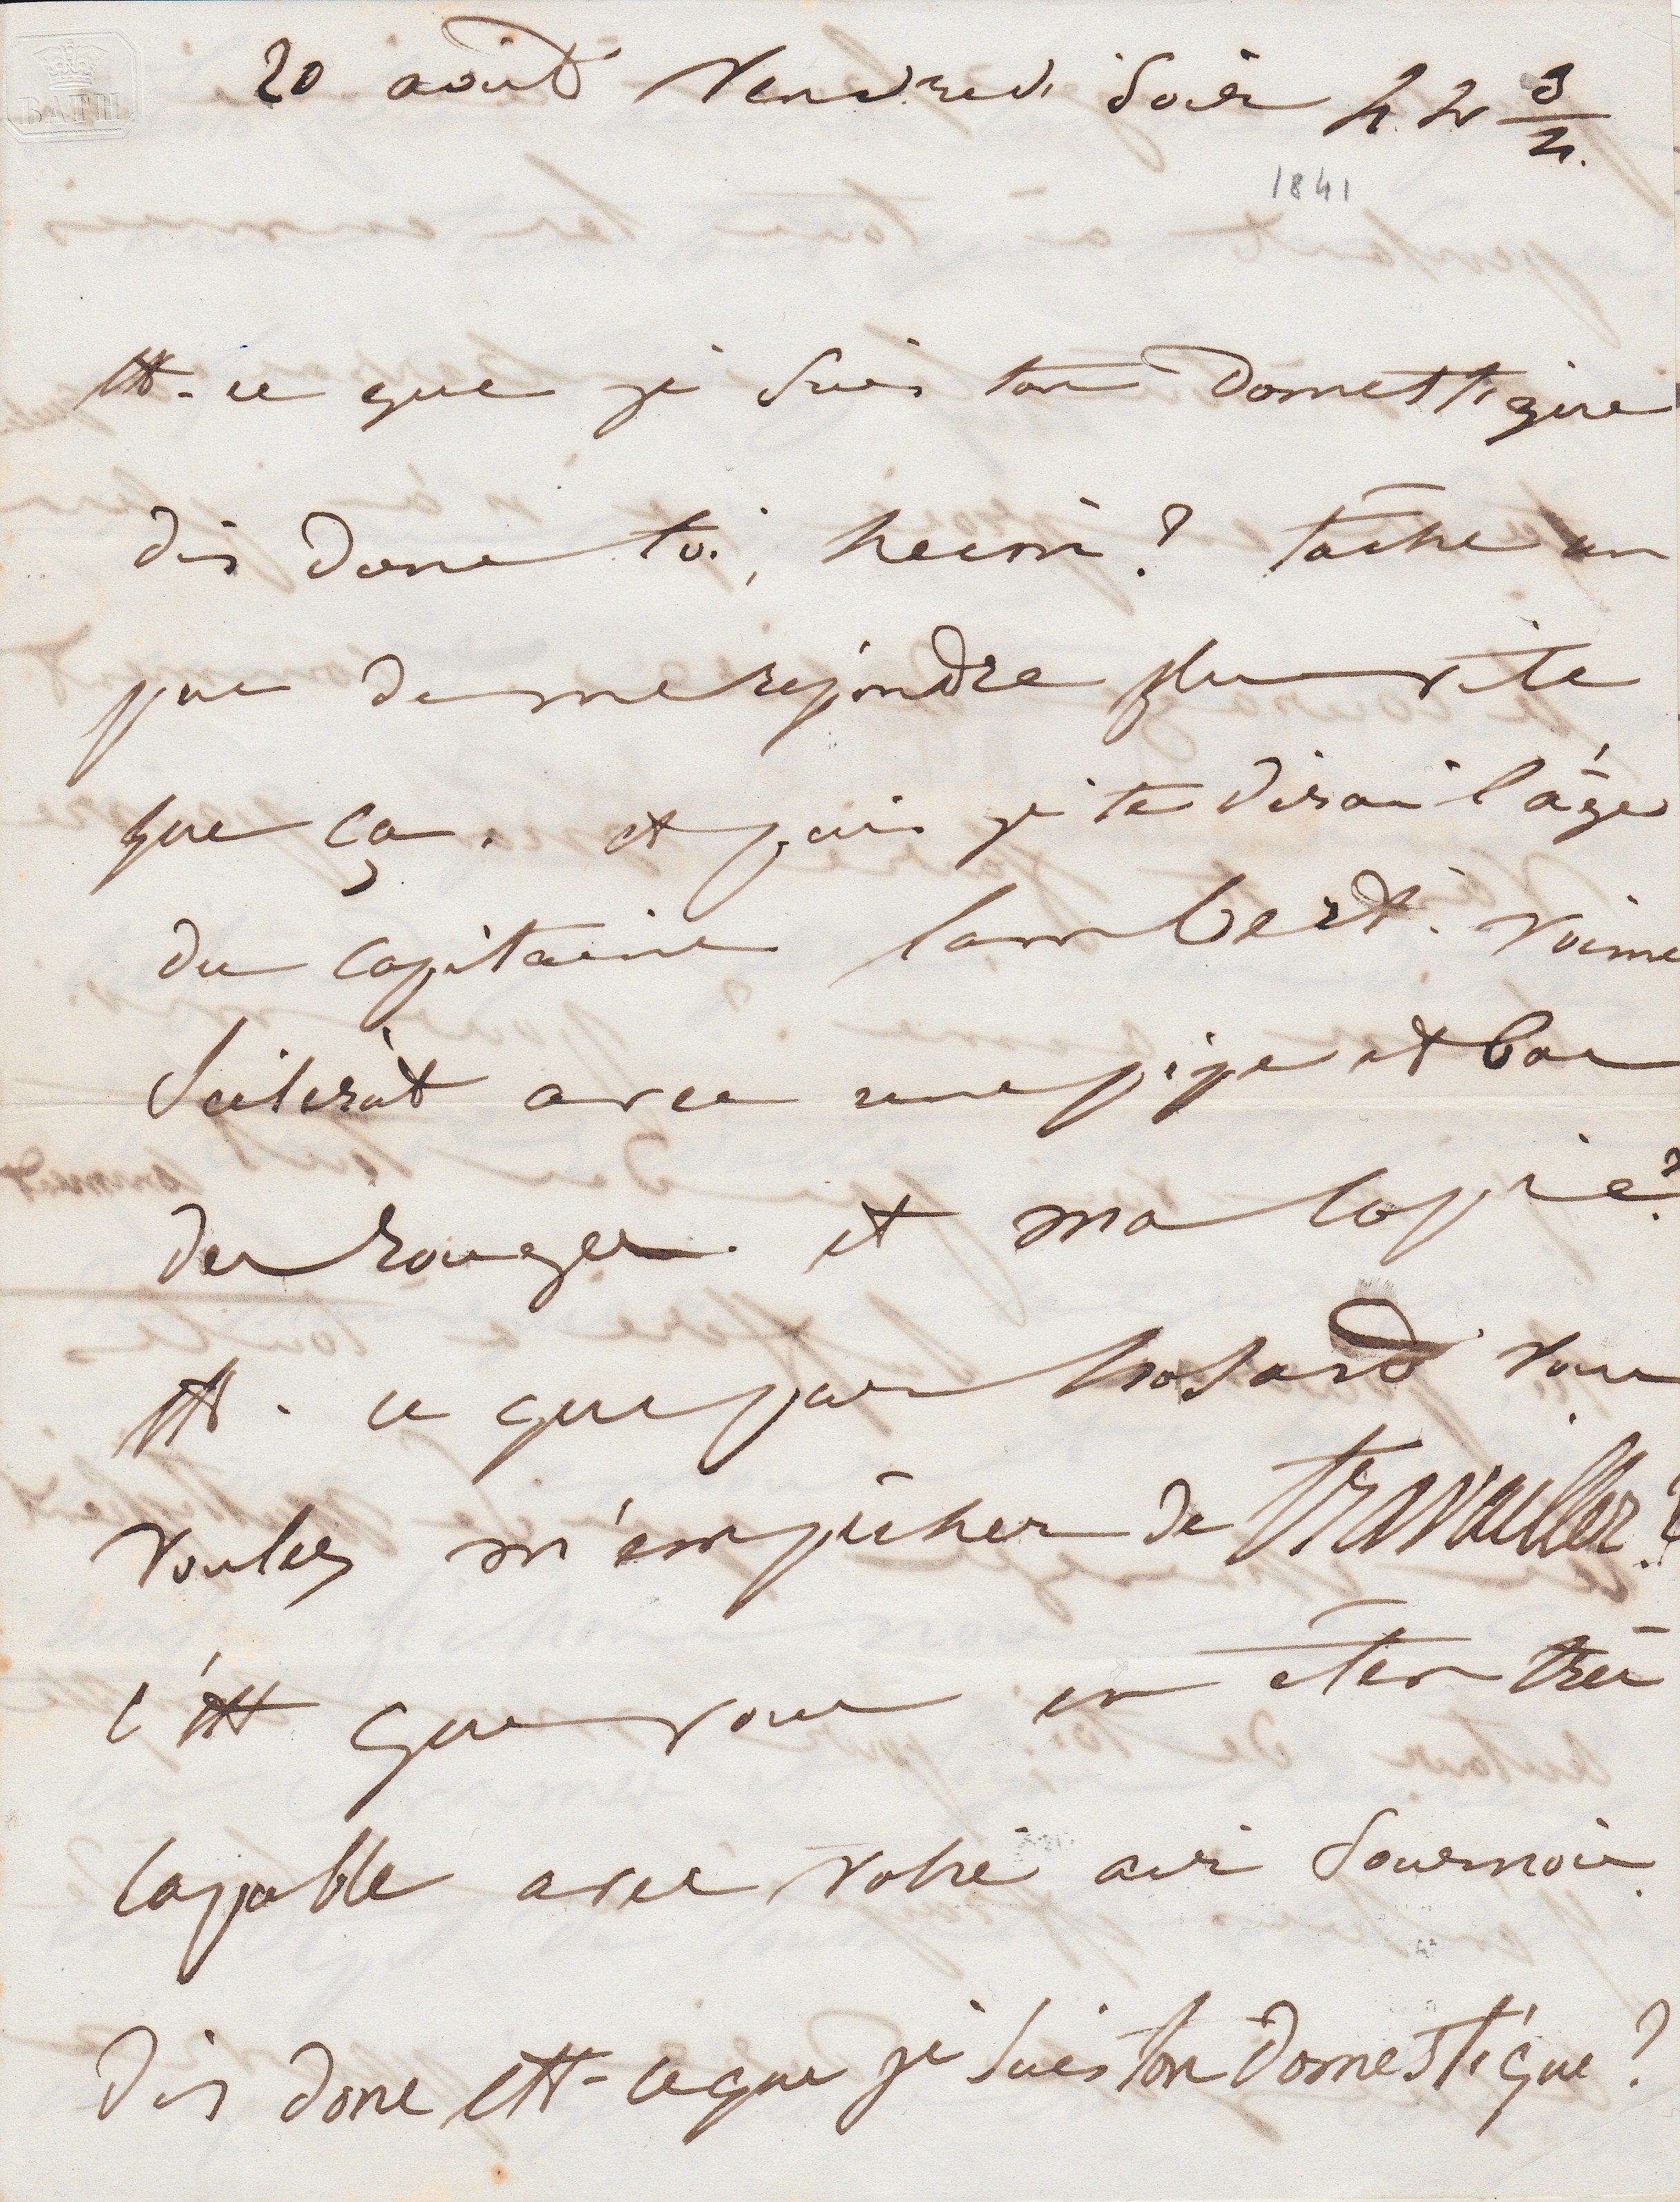 BATH
20 août vendredi soir 4 h 3/4.
1841
Est-ce que je suis ton domestique
dis donc toi, hein ? tâche un
peu de me répondre plus vite
que ça. et puis je te dirai l'âge
du capitaine lambert. voime
scilerat avec une pipe et bas
des rouges. et ma copie ?
Est-ce que par hasard vous
voulez m'empêcher de travailler ?
c'est que vous en êtes très
capable avec votre air sournois.
Dis donc est-ce que je suis ton domestique ?